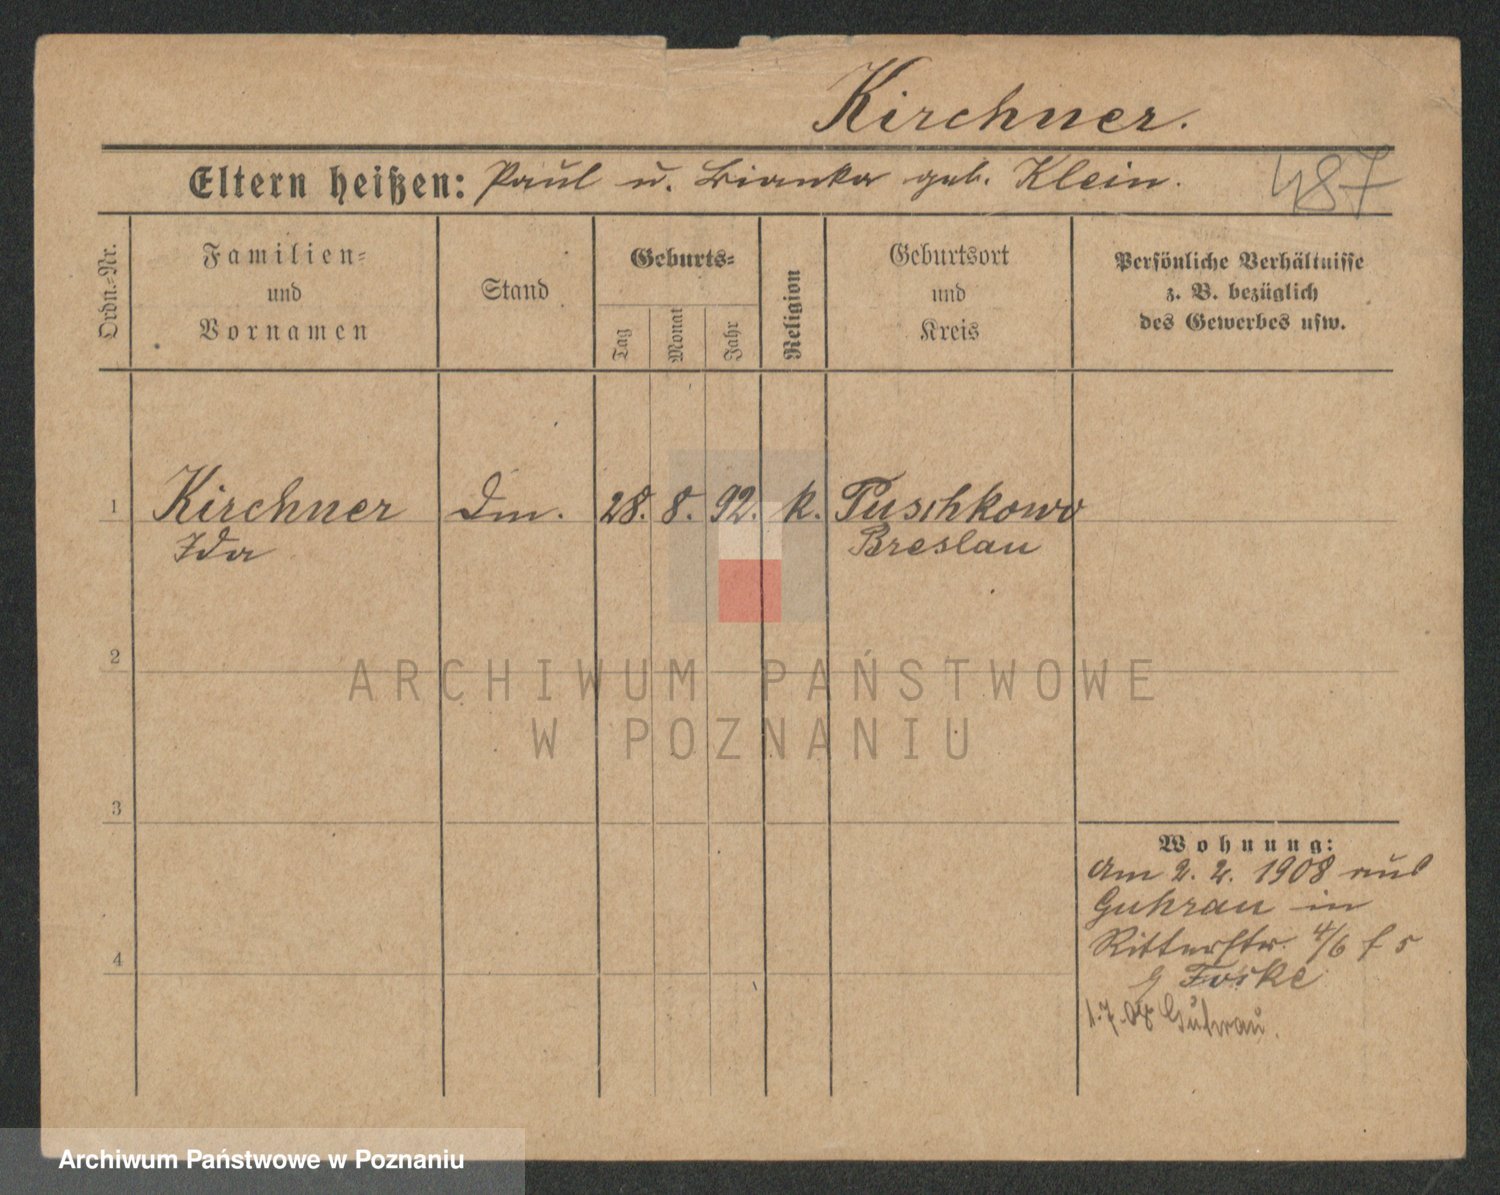 Kirchner.
Eltern heißen: Paul u. Bianka geb. Klein.
487
Ordn.-Nr.
Familien-
und
Vornamen
Stand
Geburts-
Tag
Monat
Jahr
Religion
Geburtsort
und
Kreis
Persönliche Verhältnisse
z. B. bezüglich
des Gewerbes usw.
1 Kirchner Dm. 28. 8. 92. k. Puschkowo
Ida Breslau
2
ARCHIWUM PAŃSTWOWE
W POZNANIU
3
Wohnung:
Am 2. 2. 1908 aus
Guhrau in
Ritterstr. 4/6
4
1.7.08 Guhrau.
Archiwum Państwowe w Poznaniu